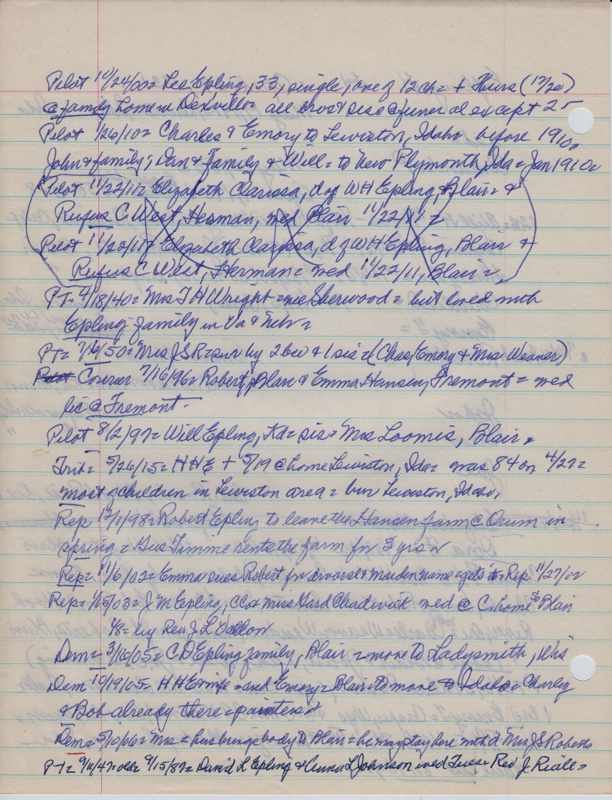 Pilot 10/24/00= Leo Epling, 33, single, one of 12 ch= + Thurs (10/20)
@ family home in Dexville= all bros & sis @ funeral except 2 =
Pilot 1/26/10= Charles & Emory to Lewiston, Idaho before 1910=
John & family; Dan & Family & Will= to New Plymouth, Ida= Jan 1910=
Pilot 11/22/11= Elizabeth Clarissa, d of WH Epling, Blair= &
Rufus C West, Herman, wed Blair 11/22/11=
Pilot 11/20/11= Elizabeth Clarissa, d of WH Epling, Blair &
Rufus C West, Herman= wed 11/22/11, Blair=
PT= 4/18/40= Mrs T H Wright= nee Sherwood= but lived with
Epling family in Va & Neb=
PT= 7/14/50= Mrs J S R= sur by 2 bro & 1 sis= (Chas, Emory & Mrs Weaver)
Courier 7/16/96= Robert, Blair & Emma Hansen, Fremont= wed
lic @ Fremont.
Pilot 8/2/97= Will Epling, Ka= sis= Mrs Loomis, Blair=
Trib= 5/26/15= H H E + 5/19 @ home Lewiston, Ida= was 84 on 4/27=
most of children in Lewiston area= bur Lewiston, Idaho,
Rep 12/1/98= Robert Epling to leave the Hansen farm @ Orum in
spring= Gus Timme rents the farm for 3 yrs=
Rep= 11/6/02= Emma sues Robert for divorce & maiden name= gets it= Rep 11/27/02
Rep= 1/15/03= J M Epling, Miss Hard Chadwick wed @ C home Blair
by Rev J L
Dem= 3/16/05= C D Epling family, Blair= move to Ladysmith, Wis
Dem 10/19/05= H H E & wife= and Emory= Blair to move to Idaho= Charley
& Bob already there= painters=
Dem= 5/10/06= Mrs = hus brings body to Blair= he may stay here with d Mrs J S Roberts
PT= 9/11/47= 9/15/87= David L Epling & Anna L Johnson wed Rev J.